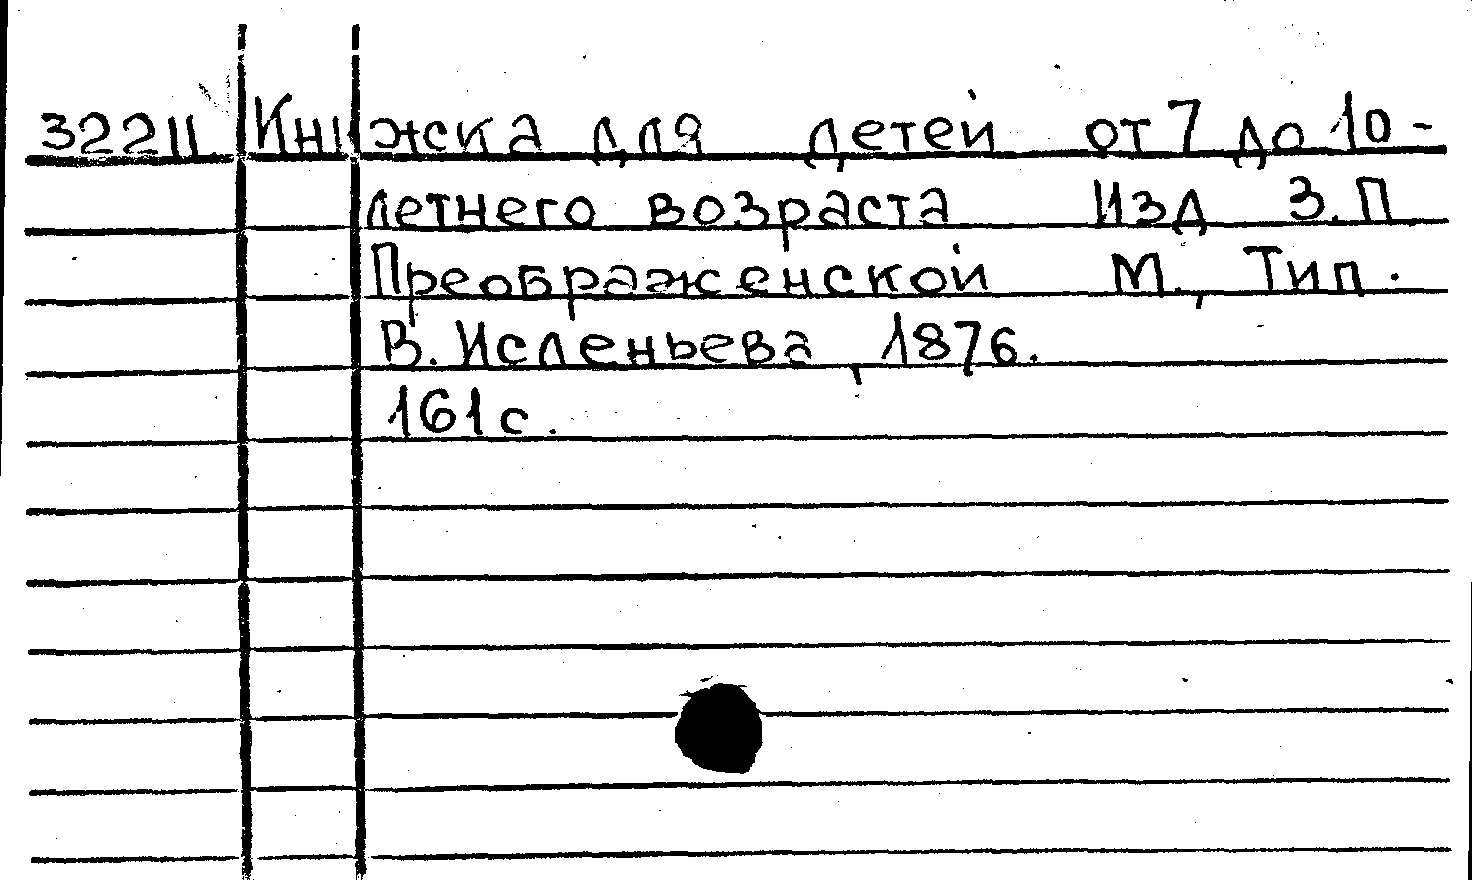 32211 Книжска для детей от 7 до 10-
летнего возраста Изд З.П
Преображенской М., Тип.
В. Исленьева, 1876.
161 с.